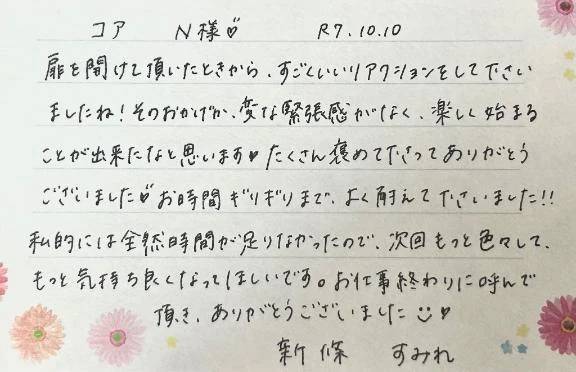 コア N様♡ R7.10.10
扉を開けて頂いたときから、すごくいいリアクションをして下さい
ましたね!そのおかげか、変な緊張感がなく、楽しく始まる
ことが出来たなと思います♡たくさん褒めて下さってありがとう
ございました♡お時間ギリギリまで、よく耐えて下さいました!!
私的には全然時間が足りなかったので、次回もっと色々して、
もっと気持ち良くなってほしいです。お仕事終わりに呼んで
頂き、ありがとうございました☺♡
新條 すみれ